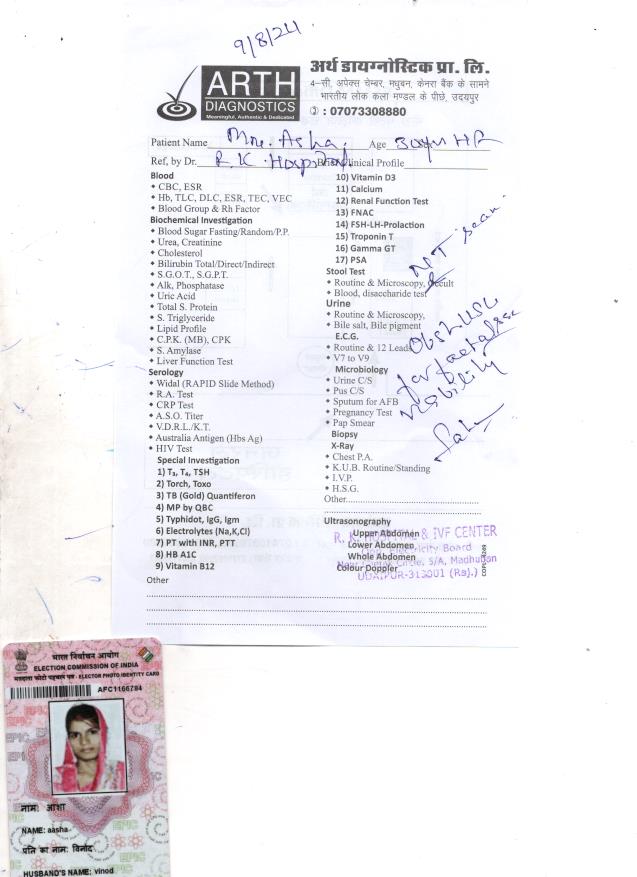 9/8/24
ARTH
DIAGNOSTICS
Meaningful, Authentic & Dedicated
अर्थ डायग्नोस्टिक प्रा. लि.
4-सी, अपेक्स चेम्बर, मधुबन, केनरा बैंक के सामने
भारतीय लोक कला मण्डल के पीछे, उदयपुर
: 07073308880
Patient Name Mrs. Asha. Age 30yr
Ref, by Dr. R.K. Hospital Clinical Profile
Blood
CBC, ESR
Hb, TLC, DLC, ESR, TEC, VEC
Blood Group & Rh Factor
Biochemical Investigation
Blood Sugar Fasting/Random/P.P.
Urea, Creatinine
Cholesterol
Bilirubin Total/Direct/Indirect
S.G.O.T., S.G.P.T.
Alk, Phosphatase
Uric Acid
Total S. Protein
S. Triglyceride
Lipid Profile
C.P.K. (MB), CPK
S. Amylase
Liver Function Test
Serology
Widal (RAPID Slide Method)
R.A. Test
CRP Test
A.S.O. Titer
V.D.R.L./K.T.
Australia Antigen (Hbs Ag)
HIV Test
Special Investigation
1) T₃, T₄, TSH
2) Torch, Toxo
3) TB (Gold) Quantiferon
4) MP by QBC
5) Typhidot, IgG, Igm
6) Electrolytes (Na,K,Cl)
7) PT with INR, PTT
8) HB A1C
9) Vitamin B12
Other
10) Vitamin D3
11) Calcium
12) Renal Function Test
13) FNAC
14) FSH-LH-Prolaction
15) Troponin T
16) Gamma GT
17) PSA
Stool Test
Routine & Microscopy, Occult
Blood, disaccharide test
Urine
Routine & Microscopy,
Bile salt, Bile pigment
E.C.G.
Routine & 12 Leads
V7 to V9
Microbiology
Urine C/S
Pus C/S
Sputum for AFB
Pregnancy Test
Pap Smear
Biopsy
X-Ray
Chest P.A.
K.U.B. Routine/Standing
I.V.P.
H.S.G.
Other
Ultrasonography
Upper Abdomen
Lower Abdomen
Whole Abdomen
Colour Doppler
NT scan
Obst USG
for foetal
viability
R. K. & IVF CENTER
Electricity Board
Circle, 5/A, Madhuban
UDAIPUR-313001 (Raj.)
भारत निर्वाचन आयोग
ELECTION COMMISSION OF INDIA
मतदाता फोटो पहचान पत्र - ELECTOR PHOTO IDENTITY CARD
AFC1166784
नाम: आशा
NAME: aasha
पति का नाम: विनोद
HUSBAND'S NAME: vinod